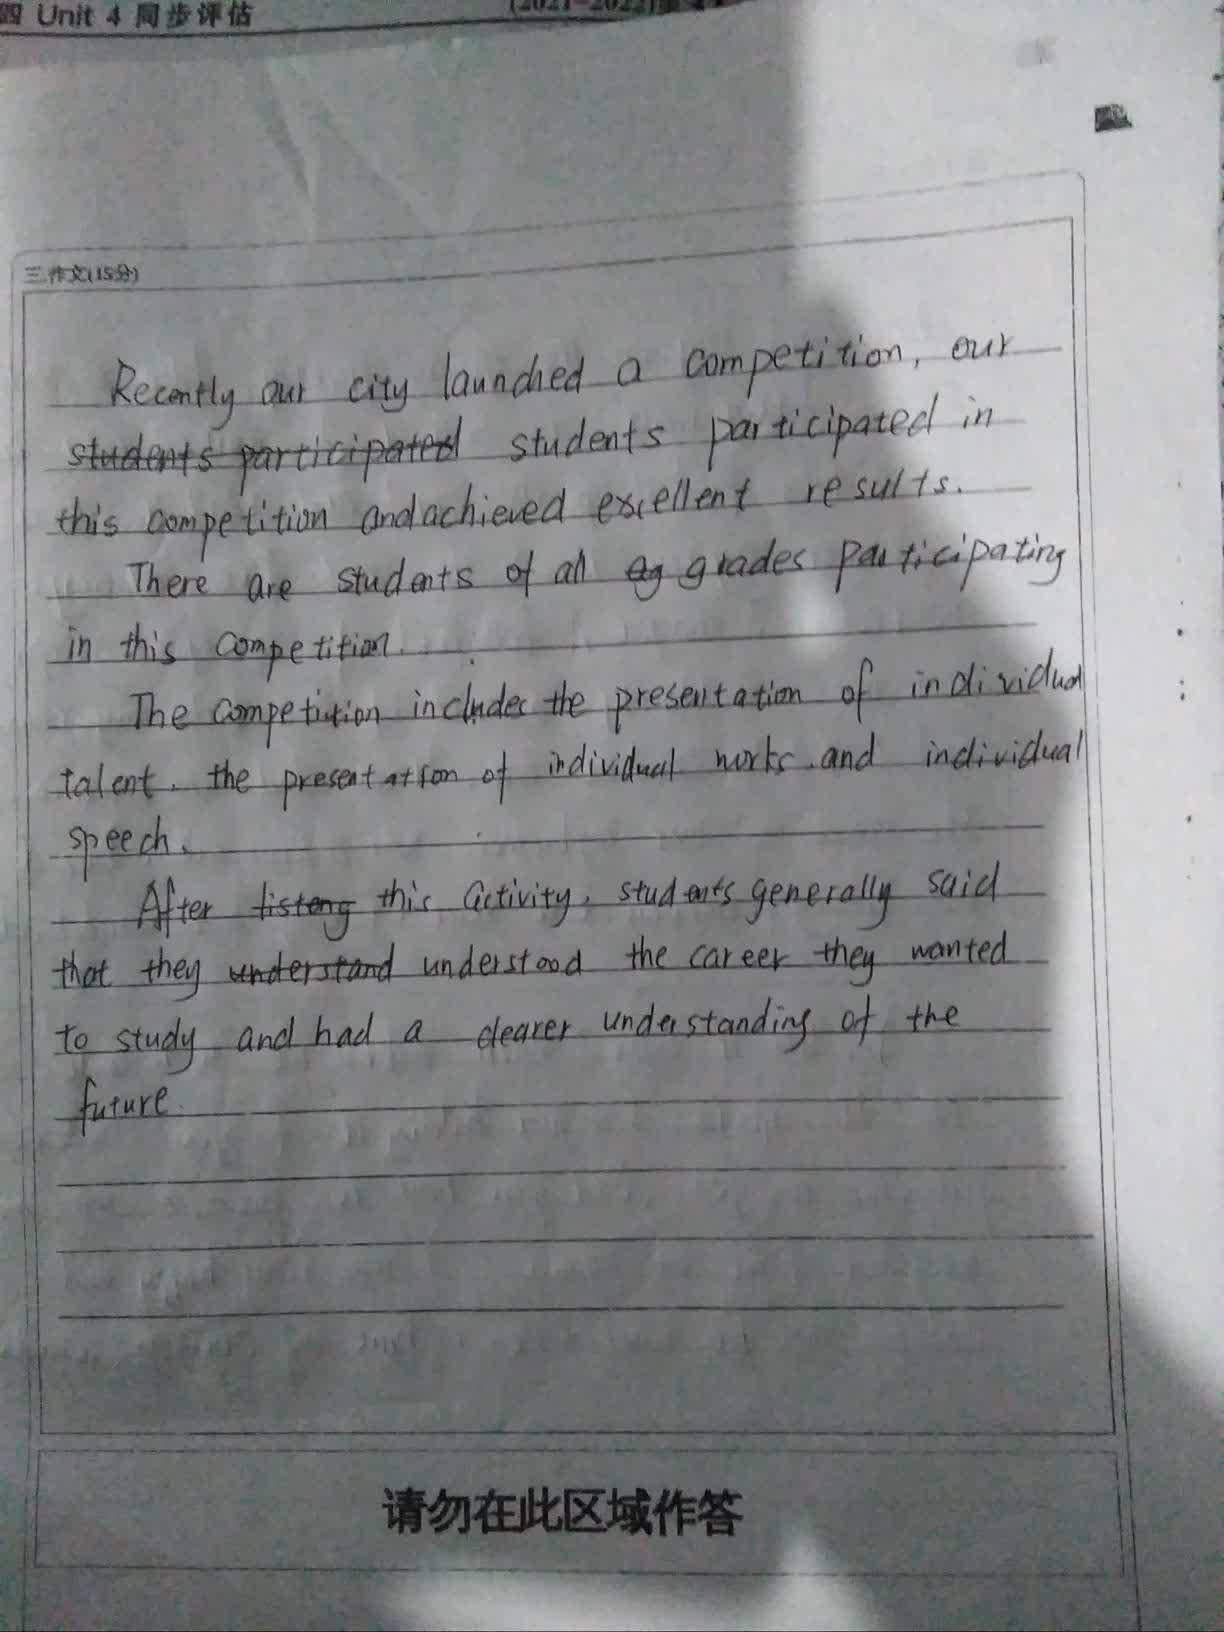 四 Unit 4 同步评估
(2021-2022)
三.作文(15分)
Recently our city launched a competition, our
students participated students participated in
this competition and achieved excellent results.
There are students of all eg grades participating
in this competition.
The competition includes the presentation of individual
talent, the presentation of individual works, and individual
speech.
After listeng this activity, students generally said
that they understand understood the career they wanted
to study and had a clearer understanding of the
future.
请勿在此区域作答